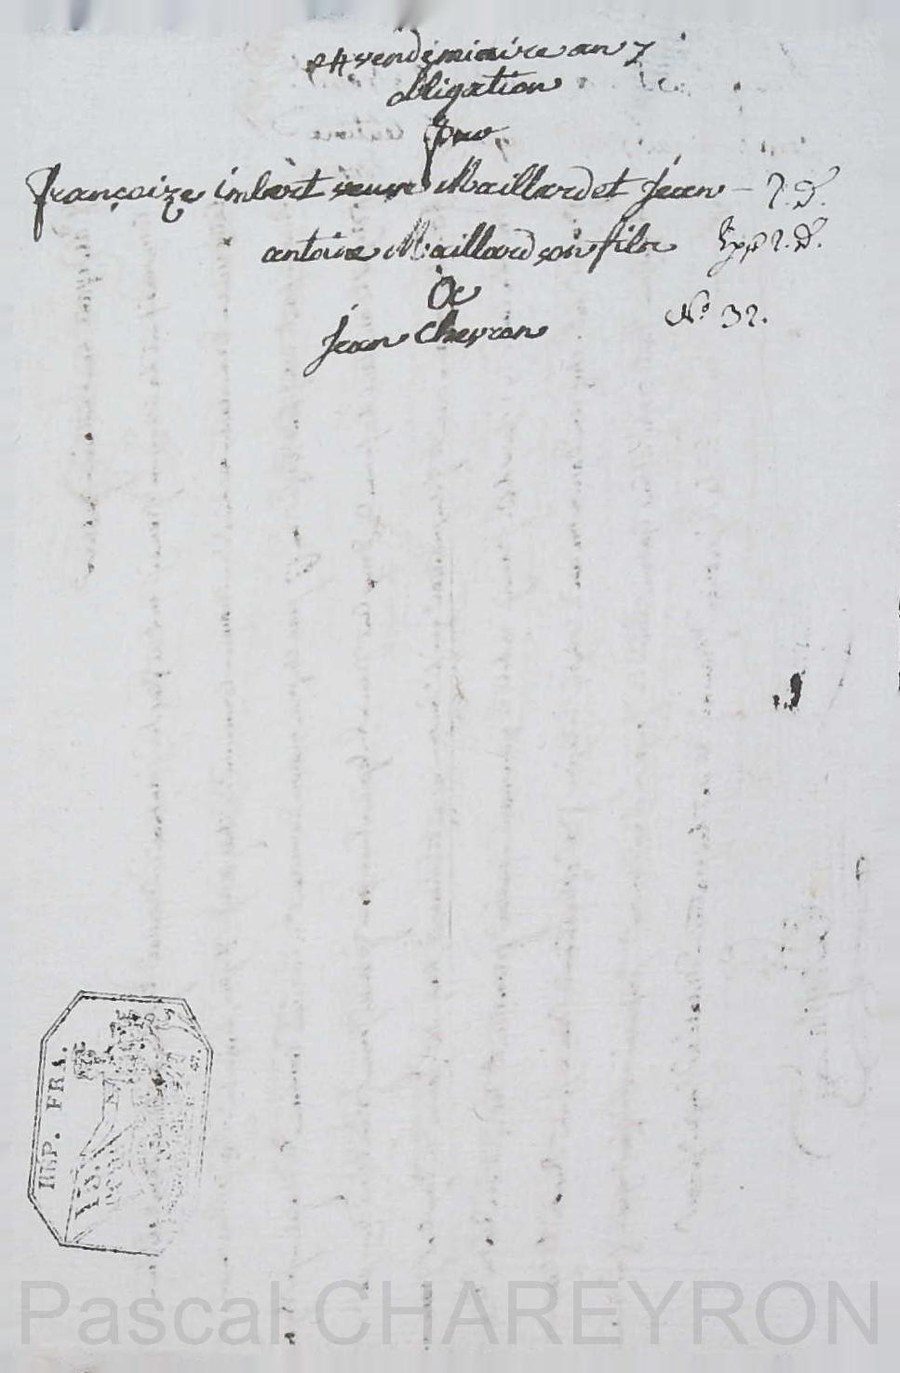 24 vendémiaire an 7
obligation
par
françoize imbert veuve Maillard et Jean – 2. d.
antoine Maillard son fils Exp 2. d.
à
Jean Cheyron
No 32.
REP. FRA.
Pascal CHAREYRON